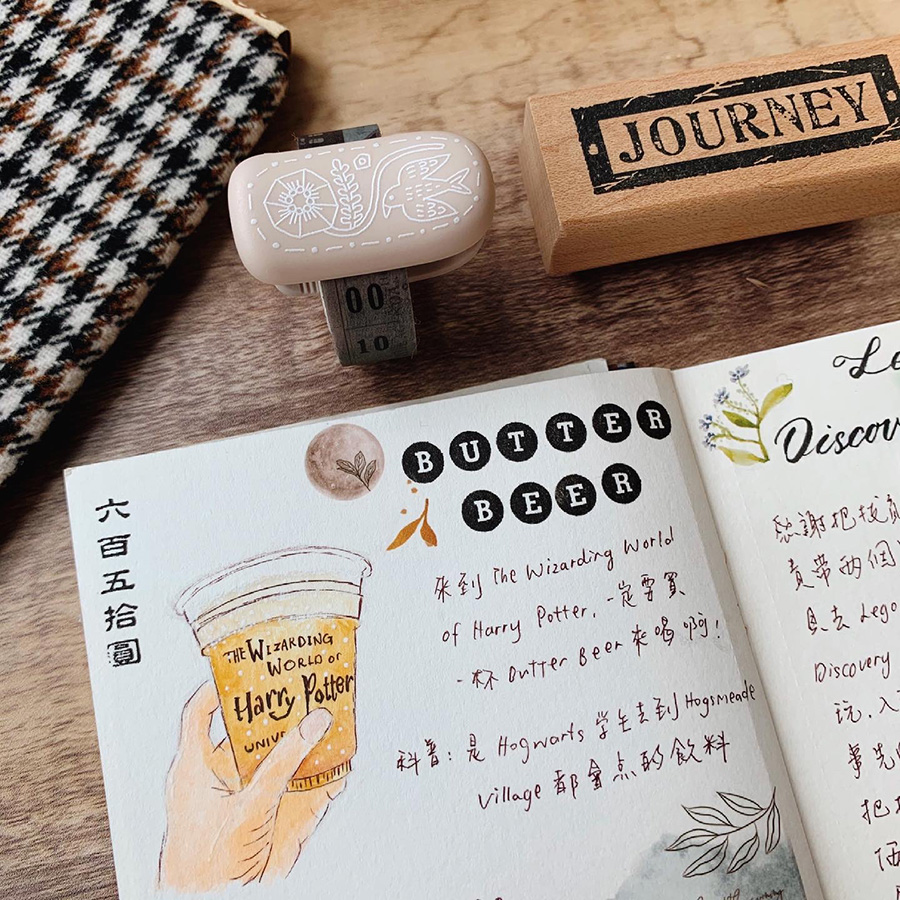 JOURNEY
00
10
六百五拾圓
BUTTER
BEER
THE WIZARDING
WORLD OF
Harry Potter
UNIV
來到 The Wizarding World
of Harry Potter, 一定要買
一杯 Butter Beer 來喝啊!
科普: 是 Hogwarts 學生去到 Hogsmeade
Village 都會点的飲料
Le
Discov
感謝把
責帶兩個
員去 Lego
Discovery
玩, 入
事先
把